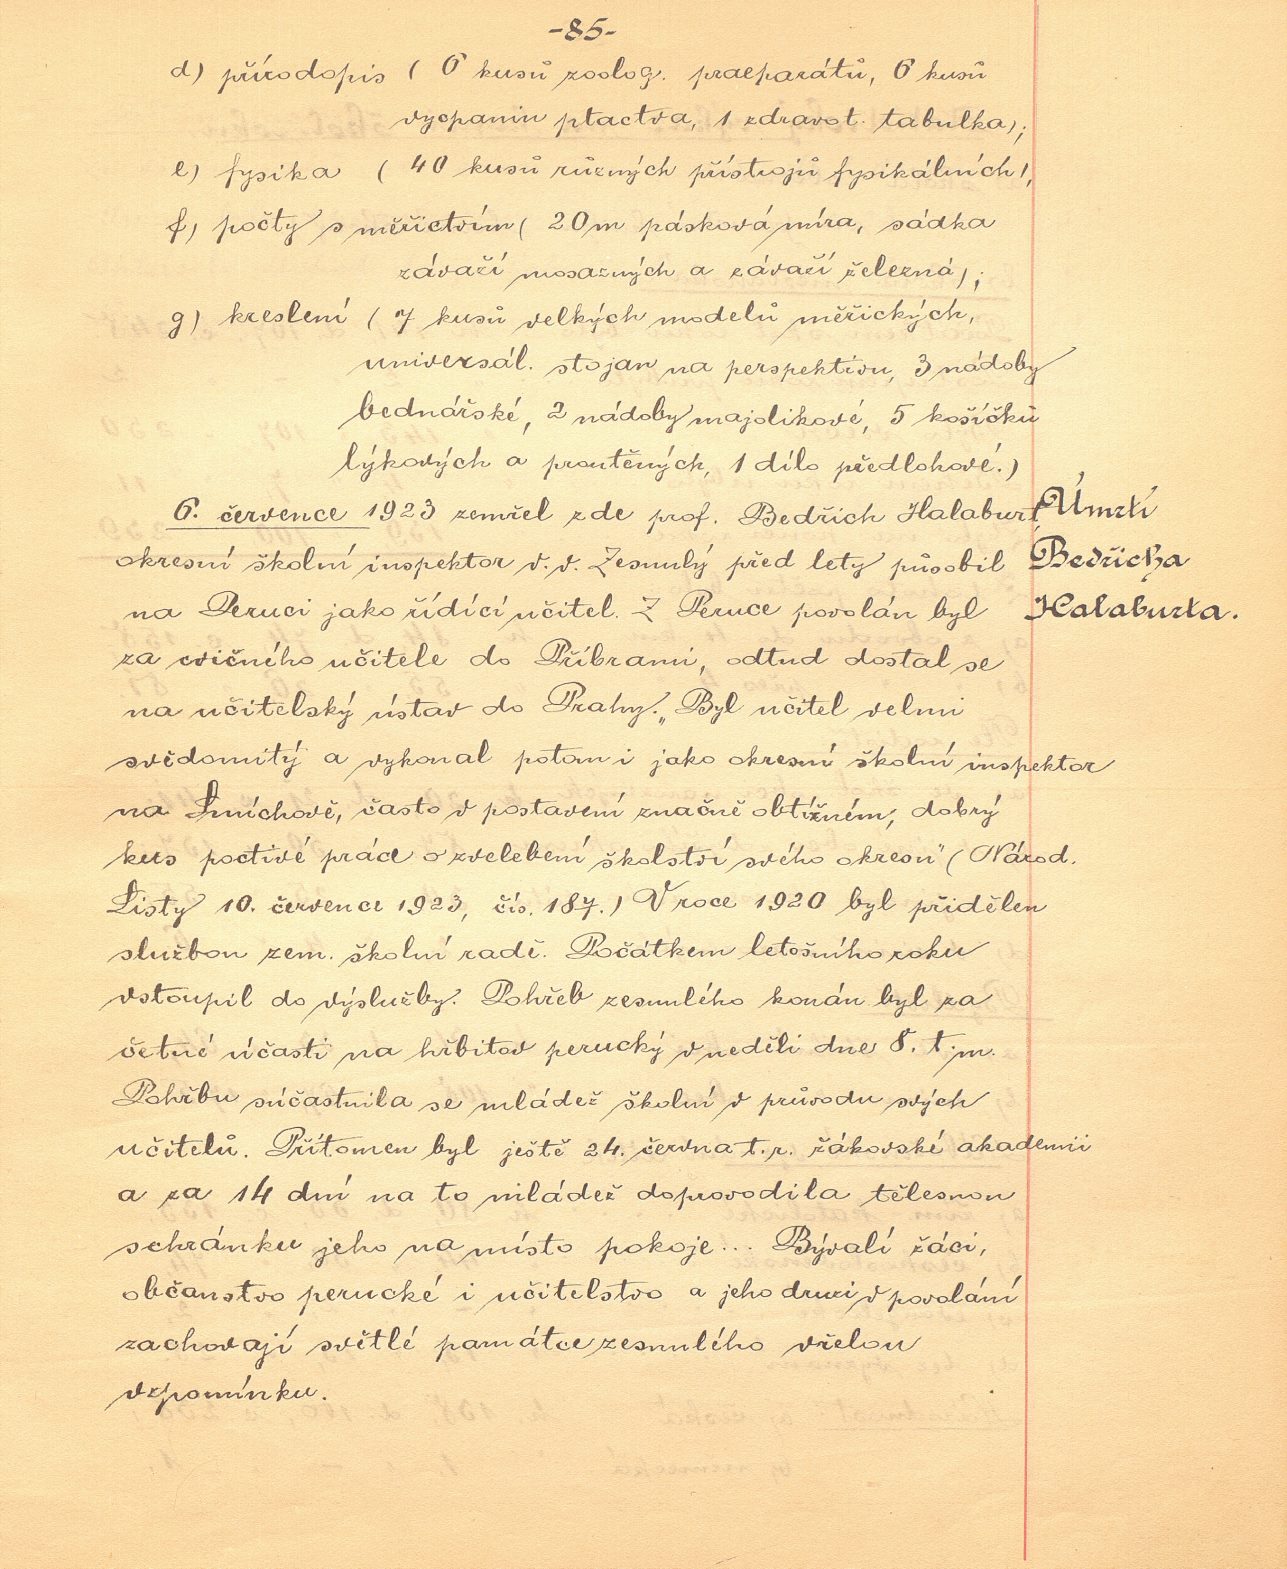 -85-
d) přírodopis ( 6 kusů zoolog. praeparátů, 6 kusů
vycpanin ptactva, 1 zdravot. tabulka);
e) fysika ( 40 kusů různých přístrojů fysikálních),
f) počty s měřictvím ( 20 m pásková míra, sádka
závaží mosazných a závaží železná);
g) kreslení ( 7 kusů velkých modelů měřických,
universál. stojan na perspektivu, 3 nádoby
bednářské, 2 nádoby majolikové, 5 košíčků
lýkových a proutěných, 1 dílo předlohové.)
6. července 1923 zemřel zde prof. Bedřich Halaburt,
okresní školní inspektor v. v. Zesnulý před lety působil
na Peruci jako řídící učitel. Z Peruce povolán byl
za cvičného učitele do Příbrami, odtud dostal se
na učitelský ústav do Prahy. „Byl učitel velmi
svědomitý a vykonal potom i jako okresní školní inspektor
na Smíchově, často v postavení značně obtížném, dobrý
kus poctivé práce o zvelebení školství svého okresu" ( Národ.
Listy 10. července 1923, čís. 187.) V roce 1920 byl přidělen
službou zem. školní radě. Počátkem letošního roku
vstoupil do výslužby. Pohřeb zesnulého konán byl za
četné účasti na hřbitov perucký v neděli dne 8. t. m.
Pohřbu súčastnila se mládež školní v průvodu svých
učitelů. Přítomen byl ještě 24. června t. r. žákovské akademii
a za 14 dní na to mládež doprovodila tělesnou
schránku jeho na místo pokoje... Bývalí žáci,
občanstvo perucké i učitelstvo a jeho druzi v povolání
zachovají světlé památce zesnulého vřelou
vzpomínku.
Úmrtí
Bedřicha
Halaburta.